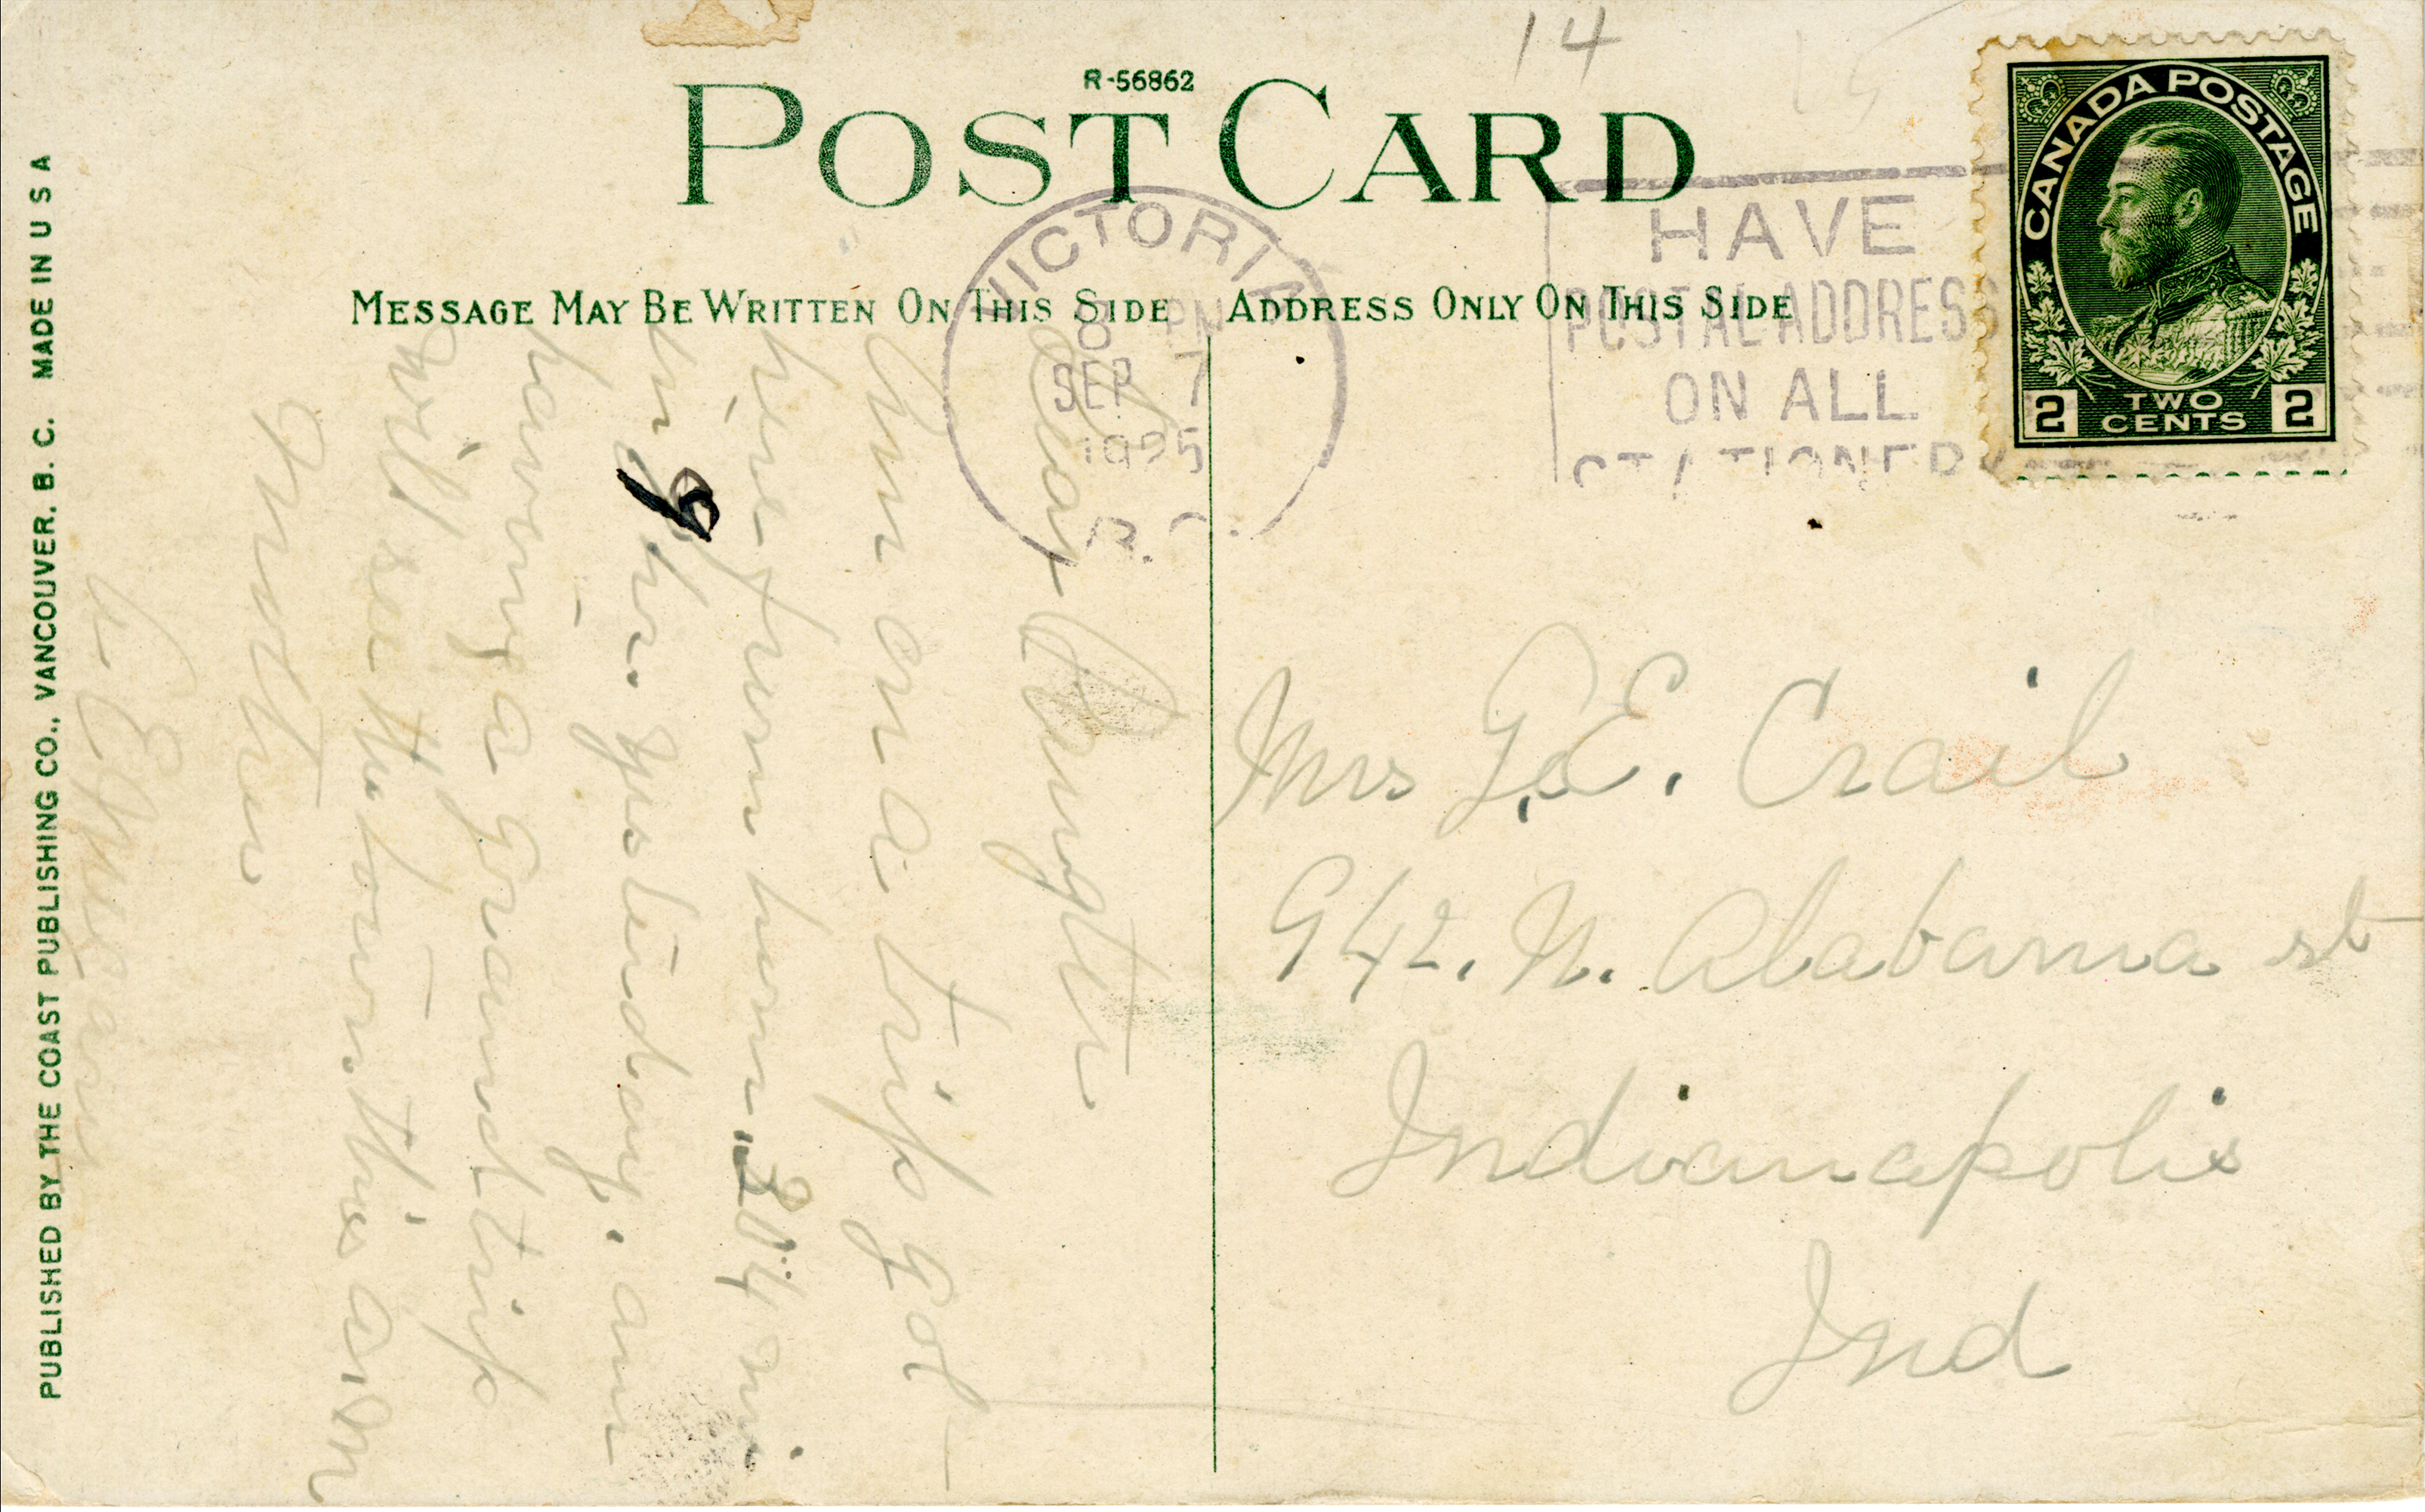 14
R-56862
POST CARD
CANADA POSTAGE
2 TWO CENTS 2
VICTORIA
8 PM
SEP 7
1925
B.C.
HAVE
POSTAL ADDRESS
ON ALL
STATIONERY
MESSAGE MAY BE WRITTEN ON THIS SIDE
ADDRESS ONLY ON THIS SIDE
PUBLISHED BY THE COAST PUBLISHING CO., VANCOUVER, B. C. MADE IN U S A
Dear Daughter
Am on a trip got
here from
yesterday. am
having a grand trip
will see the town this a.m
Mother
Mrs G. E. Crail
942. N. Alabama st
Indianapolis
Ind